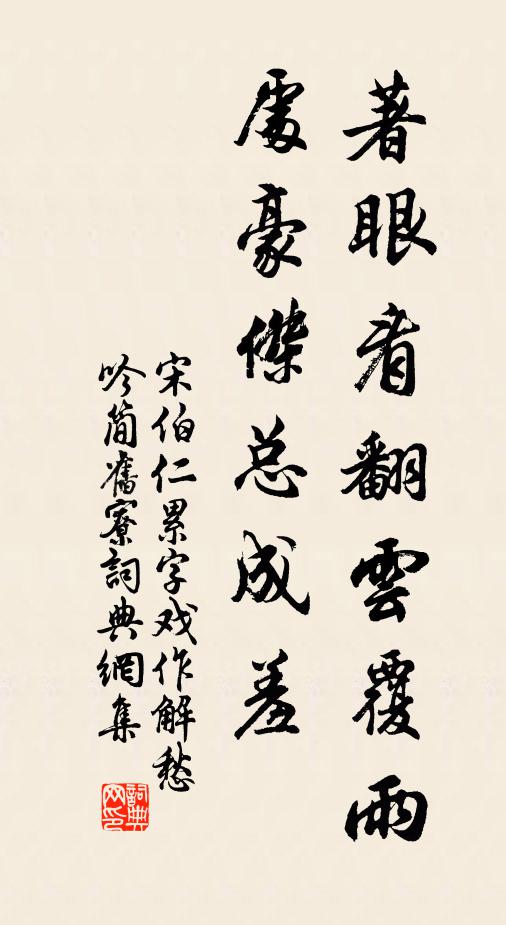 著眼看翻雲覆雨
處豪傑总成羞
宋伯仁累字戏作解愁
吟简舊寮詞典網集
詞典
网印